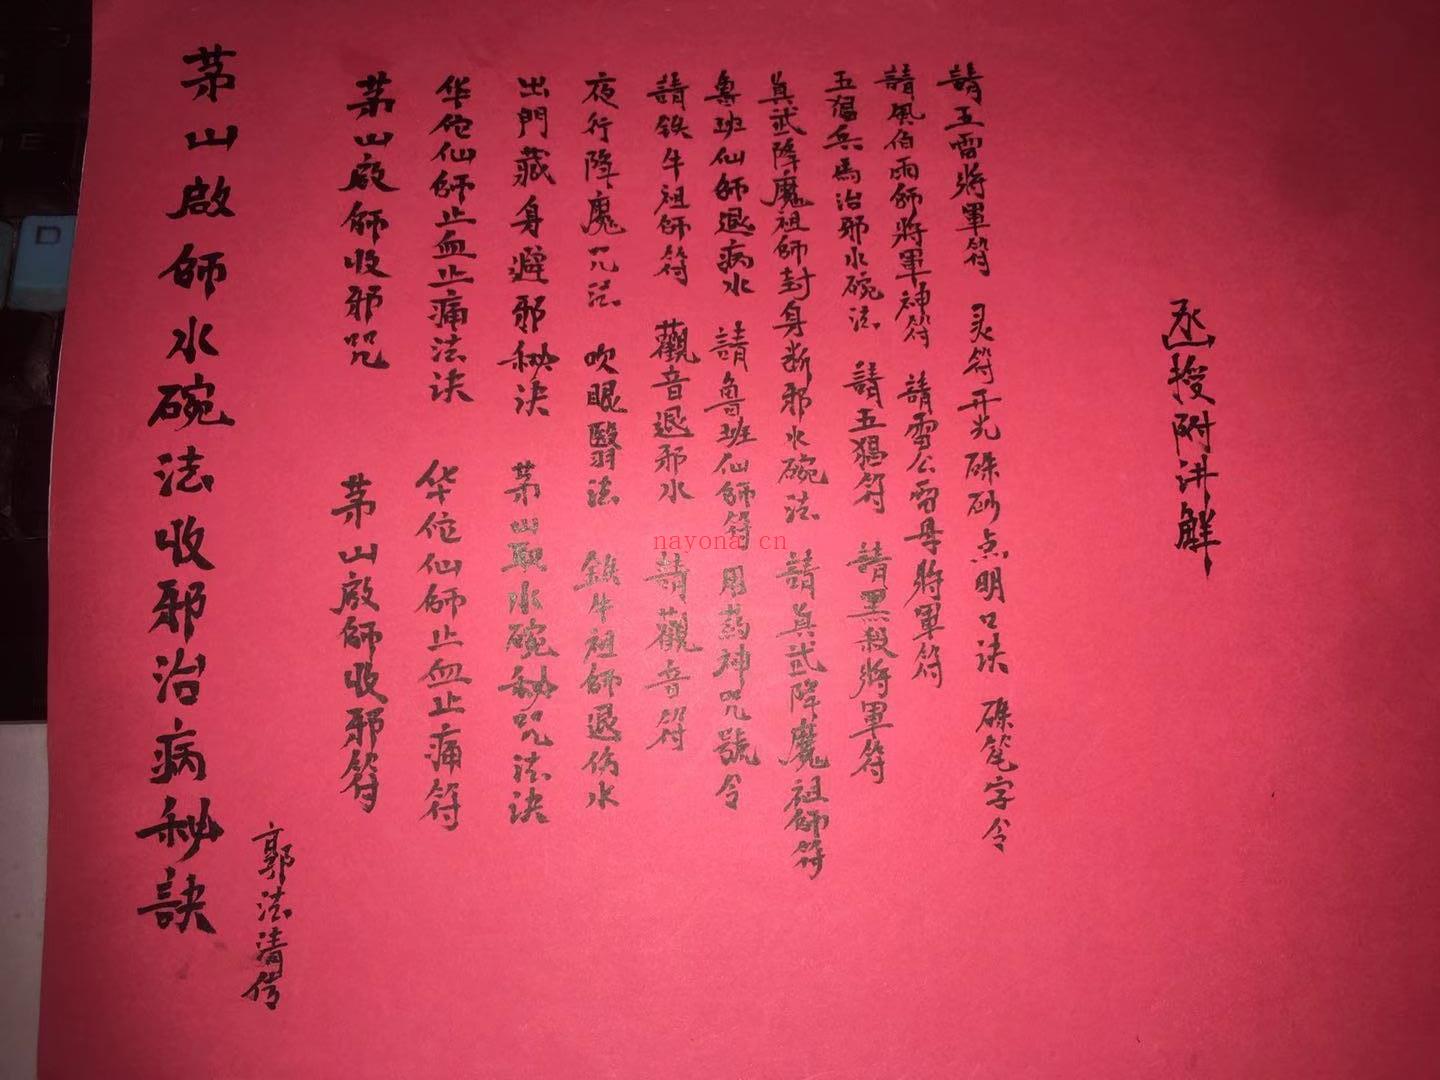 茅山啟師水碗法收邪治病秘訣
郭法清传
茅山啟師收邪咒 茅山啟師收邪符
华佗仙師止血止痛法诀 华佗仙師止血止痛符
出門藏身避邪秘诀 茅山取水碗秘咒法诀
夜行降魔咒法 吹眼翳法 鉄牛祖師退伤水
請鉄牛祖師符 觀音退邪水 請觀音符
魯班仙師退病水 請魯班仙師符 用葯神咒號令
真武降魔祖師封身断邪水碗法 請真武降魔祖師符
五猖兵馬治邪水碗法 請五猖符 請黑殺將軍符
請風伯雨師將軍神符 請雷公雷母將軍符
請五雷將軍符 灵符开光硃砂点明口诀 硃笔字令
函授附讲解
nayona.cn